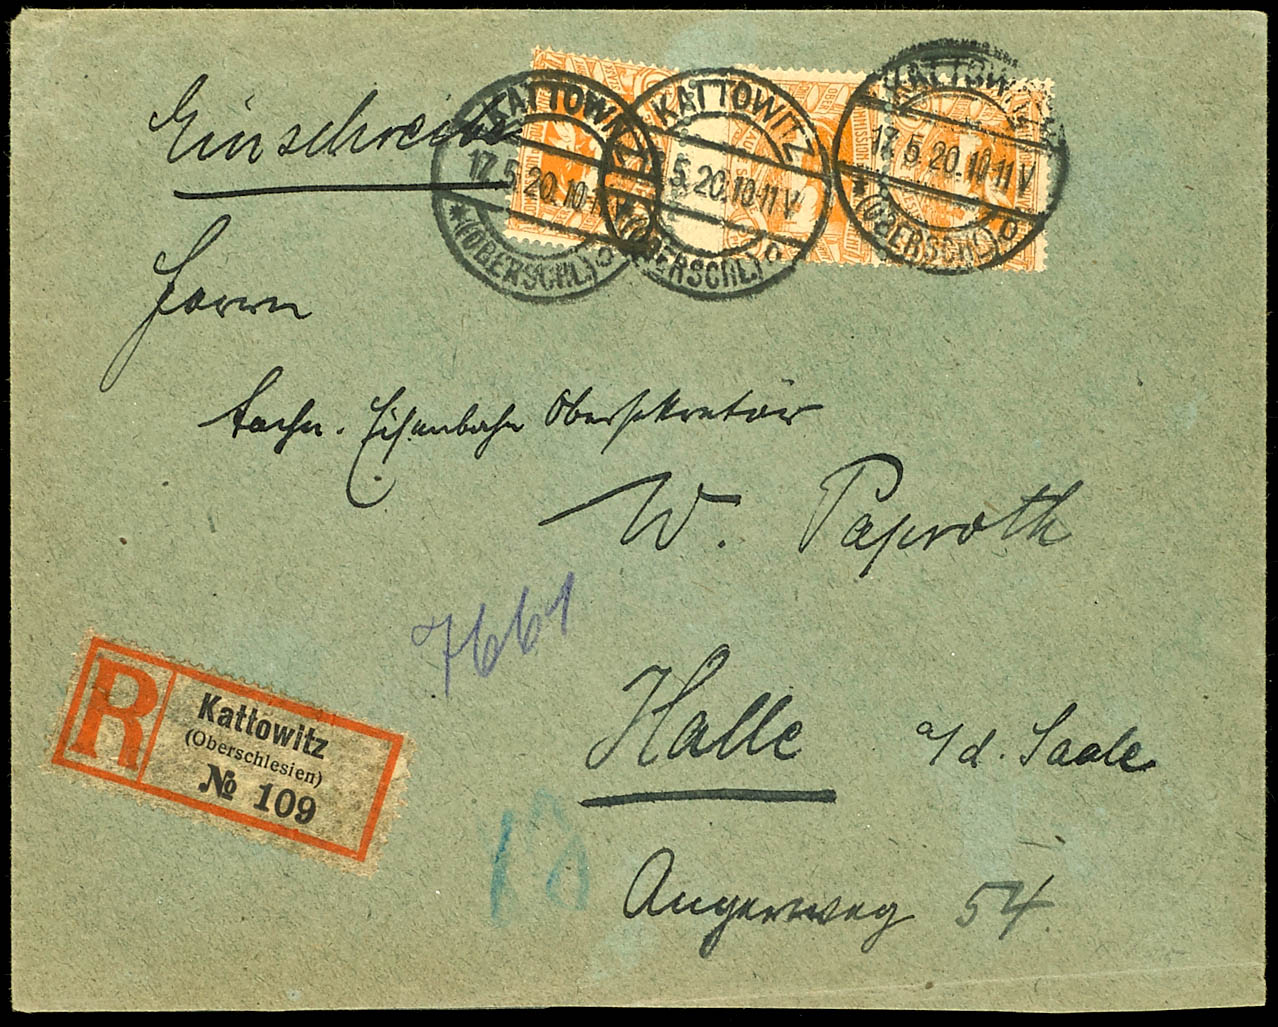 Einschreiben
KATTOWITZ
17.5.20.10-11V
* (OBERSCHL.) o
KATTOWITZ
5.20.10-11V
* (OBERSCHL.) o
KATTOWITZ
17.5.20.10-11V
* (OBERSCHL.) o
Herrn
techn. Eisenbahn Obersekretär
W. Paproth
7661
Halle a/d. Saale
Angerweg 54.
R
Kattowitz
(Oberschlesien)
№ 109